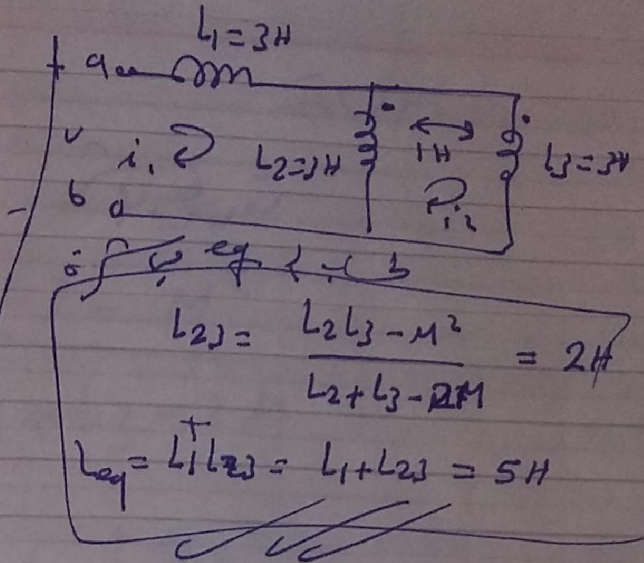 L₁=3H
+ a
v i₁ L₂=3H 1H L₃=3H
- b i₂
eq
L₂₃ = L₂L₃-M² / L₂+L₃-2M = 2H
Leq = L₁+L₂₃ = L₁+L₂₃ = 5H